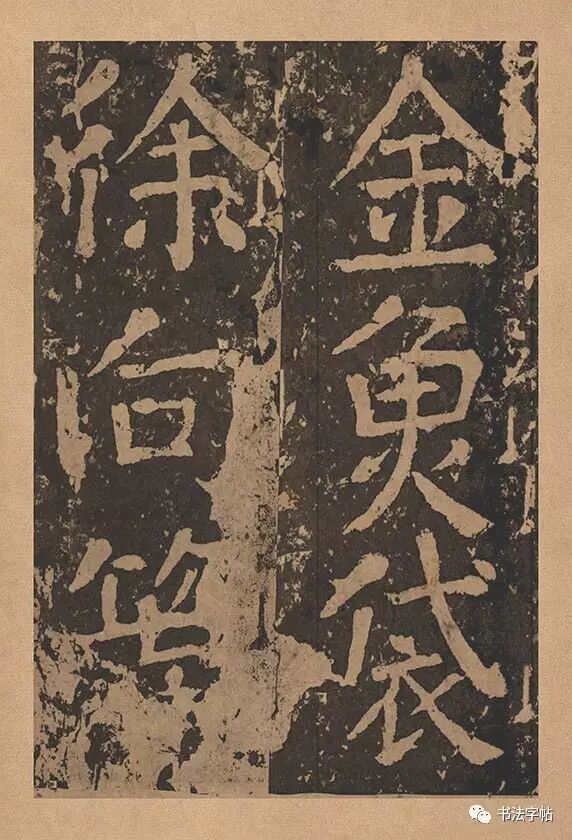 金魚袋
徐向等
书法字帖